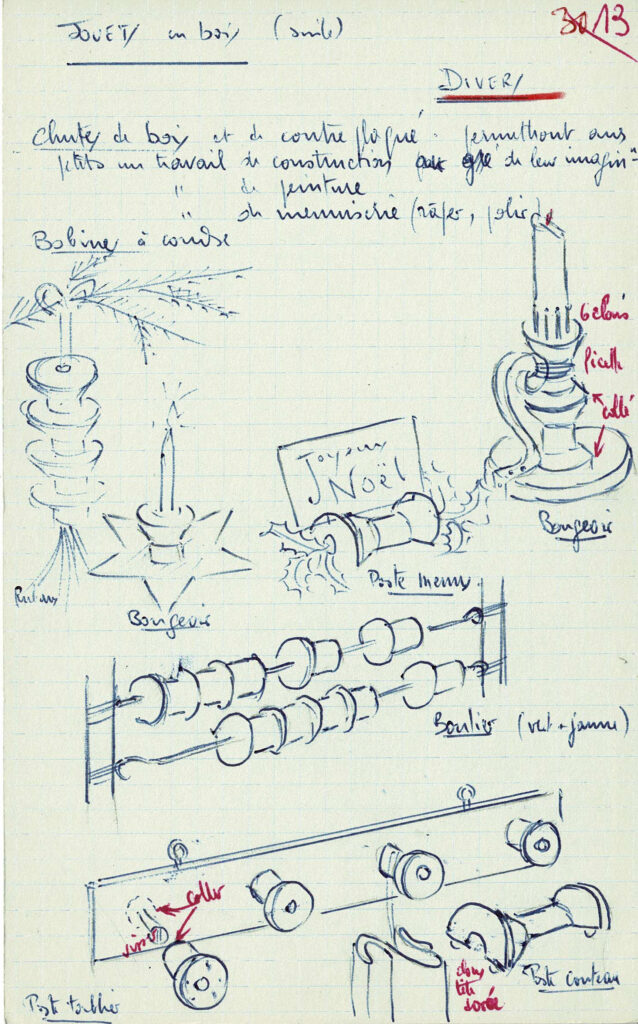 JOUETS en bois (suite)
3013
DIVERS
Chutes de bois et de contre plaqué. permettront aux
petits un travail de construction au gré de leur imagin°
" de peinture
" de menuiserie (râper, polir)
Bobines à coudre
6 clous
ficelle
collé
Joyeux
Noël
Bougeoir
Porte menus
Rubans
Bougeoir
Boulier (vert + jaune)
coller
visser
clous
tête
dorée
Porte couteau
Porte torchon